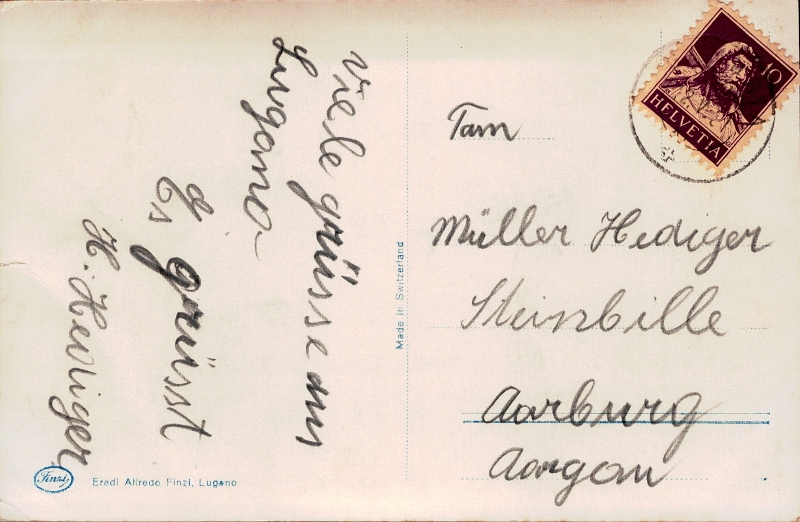 Viele grüsse aus
Lugano
Es grüsst
H. Hediger
10
HELVETIA
Fam
Müller Hediger
Steinbille
Aarburg
Aargau
Made in Switzerland
Finzi
Eredi Alfredo Finzi, Lugano